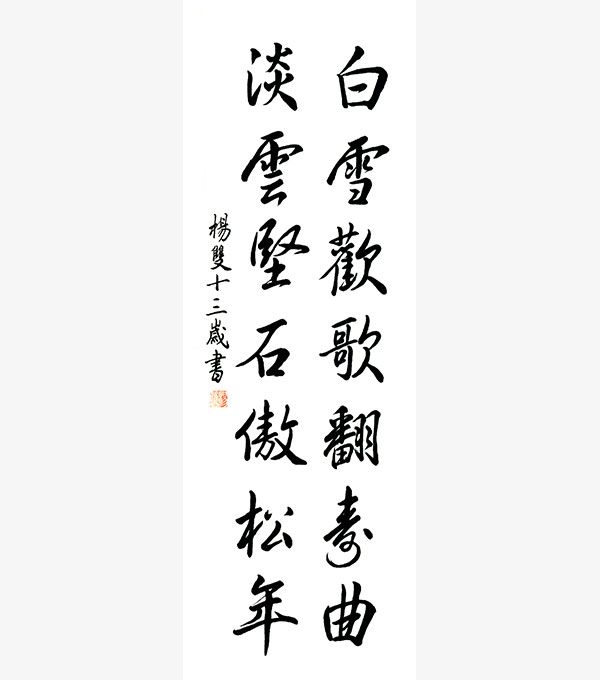 白雪歡歌翻壽曲
淡雲堅石傲松年
楊雙十三歲書